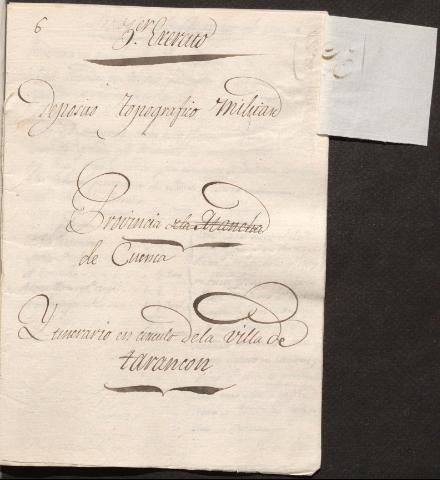 6
3.er Exercito
Deposito topografico Militar
Provincia de la Mancha
de Cuenca
Ytinerario en circulo de la Villa de
tarancon